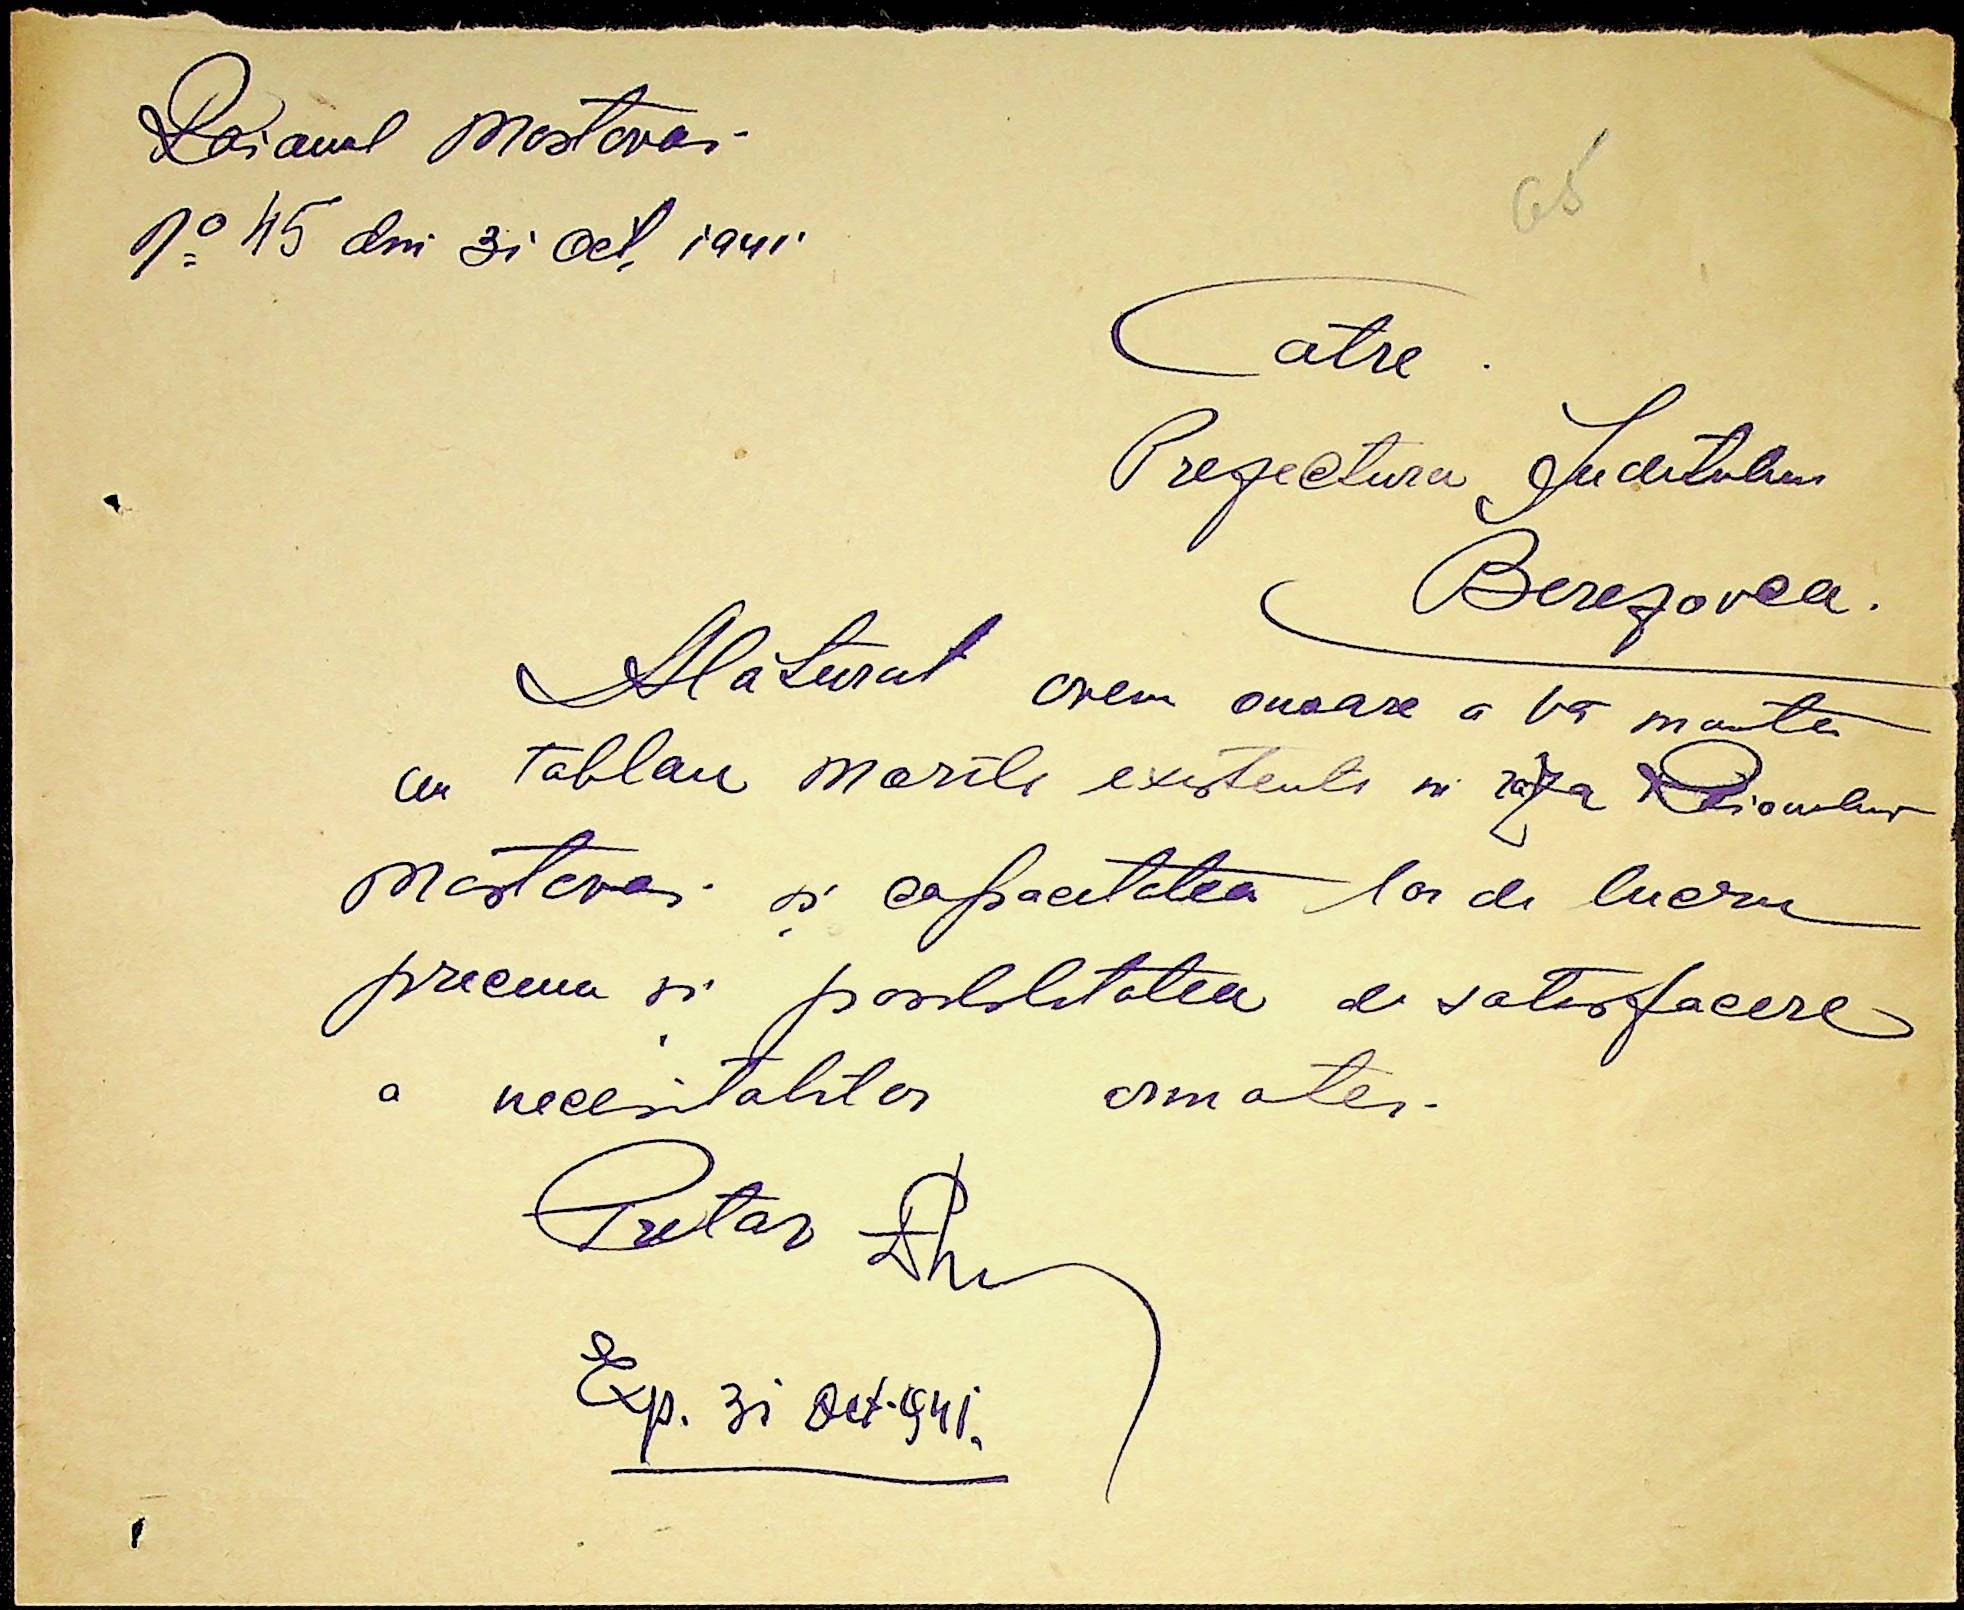 Raionul Mostovoi
No 45 din 31 Oct. 1941
65
Catre
Prefectura Judetului
Berezovca.
Alăturat avem onoare a vă inainta
un tablau morile existente in raza Raionului
Mostovoi și capacitatea lor de lucru
precum și posibilitatea de satisfacere
a necesitatilor armatei.
Pretor
Exp. 31 Oct. 941.